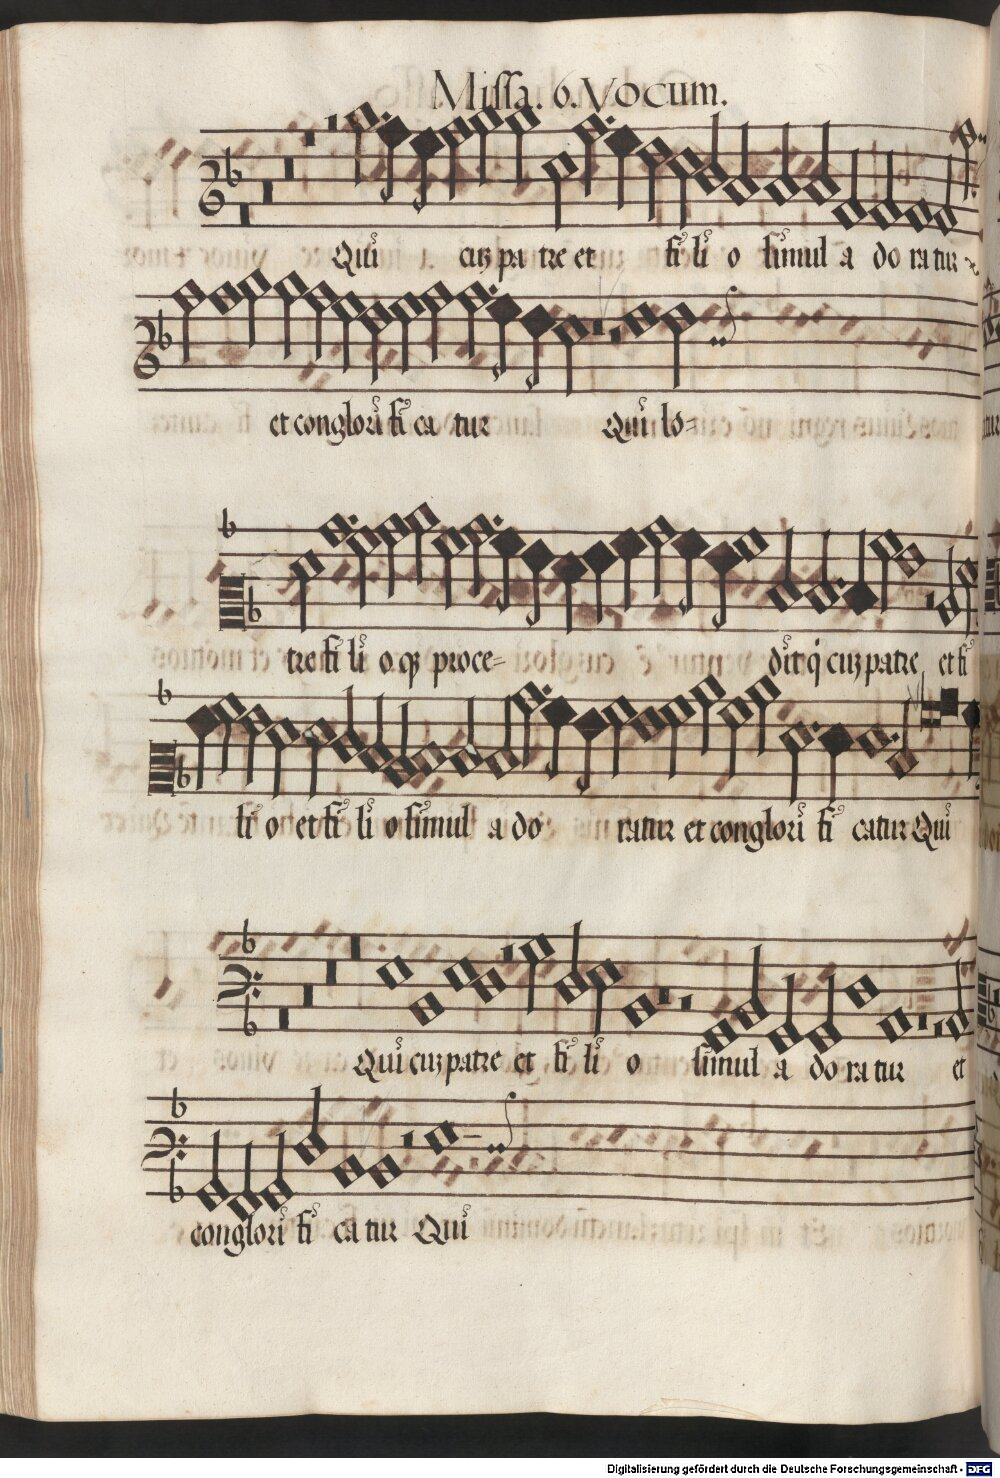 Missa. 6. Vocum.
Qui cu3 pa tre et fi li o simul a do ra tur
et conglori fi ca tur Qui lo=
tre fi li o q3 proce= dit q cu3 patre et fi
li o et fi li o simul a do ratur et conglori fi catur Qui
Qui cu3 patre et fi li o simul a do ra tur et
conglori fi ca tur Qui
Digitalisierung gefördert durch die Deutsche Forschungsgemeinschaft - DFG